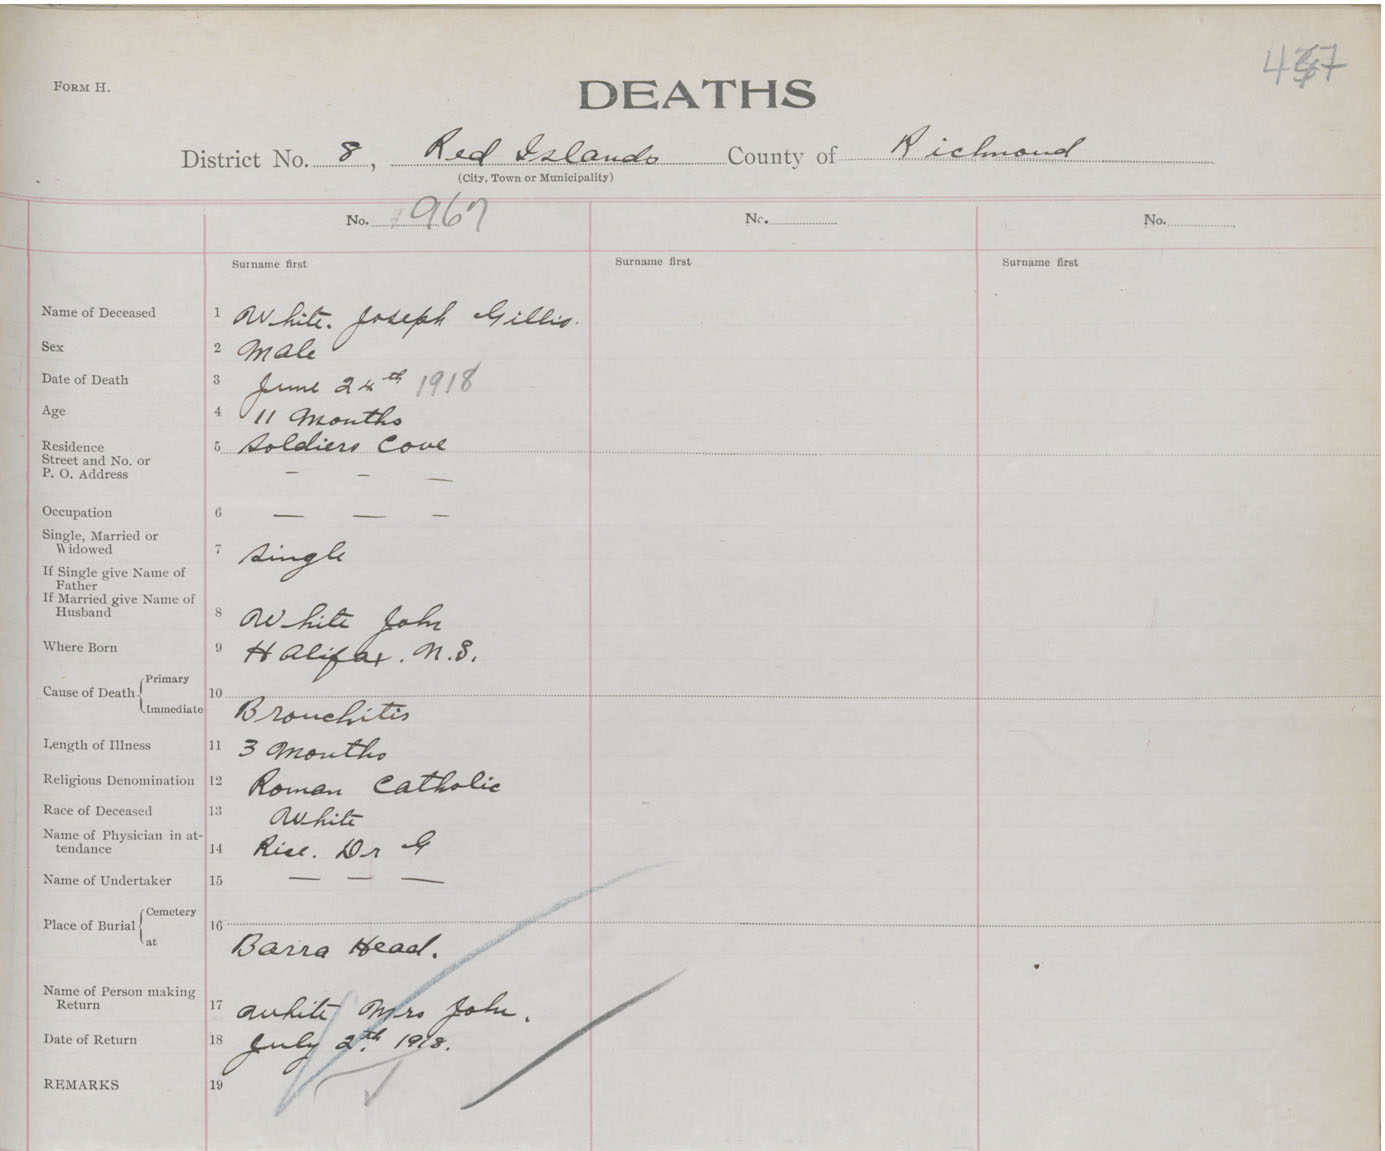 FORM H.
DEATHS
District No. 8, Red Islands County of Richmond
(City, Town or Municipality)
No. 967 No. No.
Surname first Surname first Surname first
Name of Deceased 1 White. Joseph Gillis.
Sex 2 Male
Date of Death 3 June 24th 1918
Age 4 11 Months
Residence 5 Soldiers Cove
Street and No. or
P. O. Address — — —
Occupation 6 — — —
Single, Married or
Widowed 7 Single
If Single give Name of
Father
If Married give Name of
Husband 8 White John
Where Born 9 Halifax. N.S.
Cause of Death { Primary 10
Immediate Bronchitis
Length of Illness 11 3 Months
Religious Denomination 12 Roman Catholic
Race of Deceased 13 White
Name of Physician in at-
tendance 14 Rice. Dr G
Name of Undertaker 15 — — —
Place of Burial { Cemetery 16
at Barra Head.
Name of Person making
Return 17 White Mrs John.
Date of Return 18 July 2th. 1918.
REMARKS 19